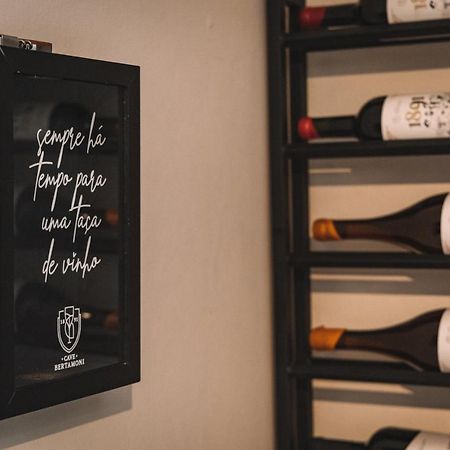 sempre há
tempo para
uma taça
de vinho
18 91
• CAVE •
BERTAMONI
1891
1891